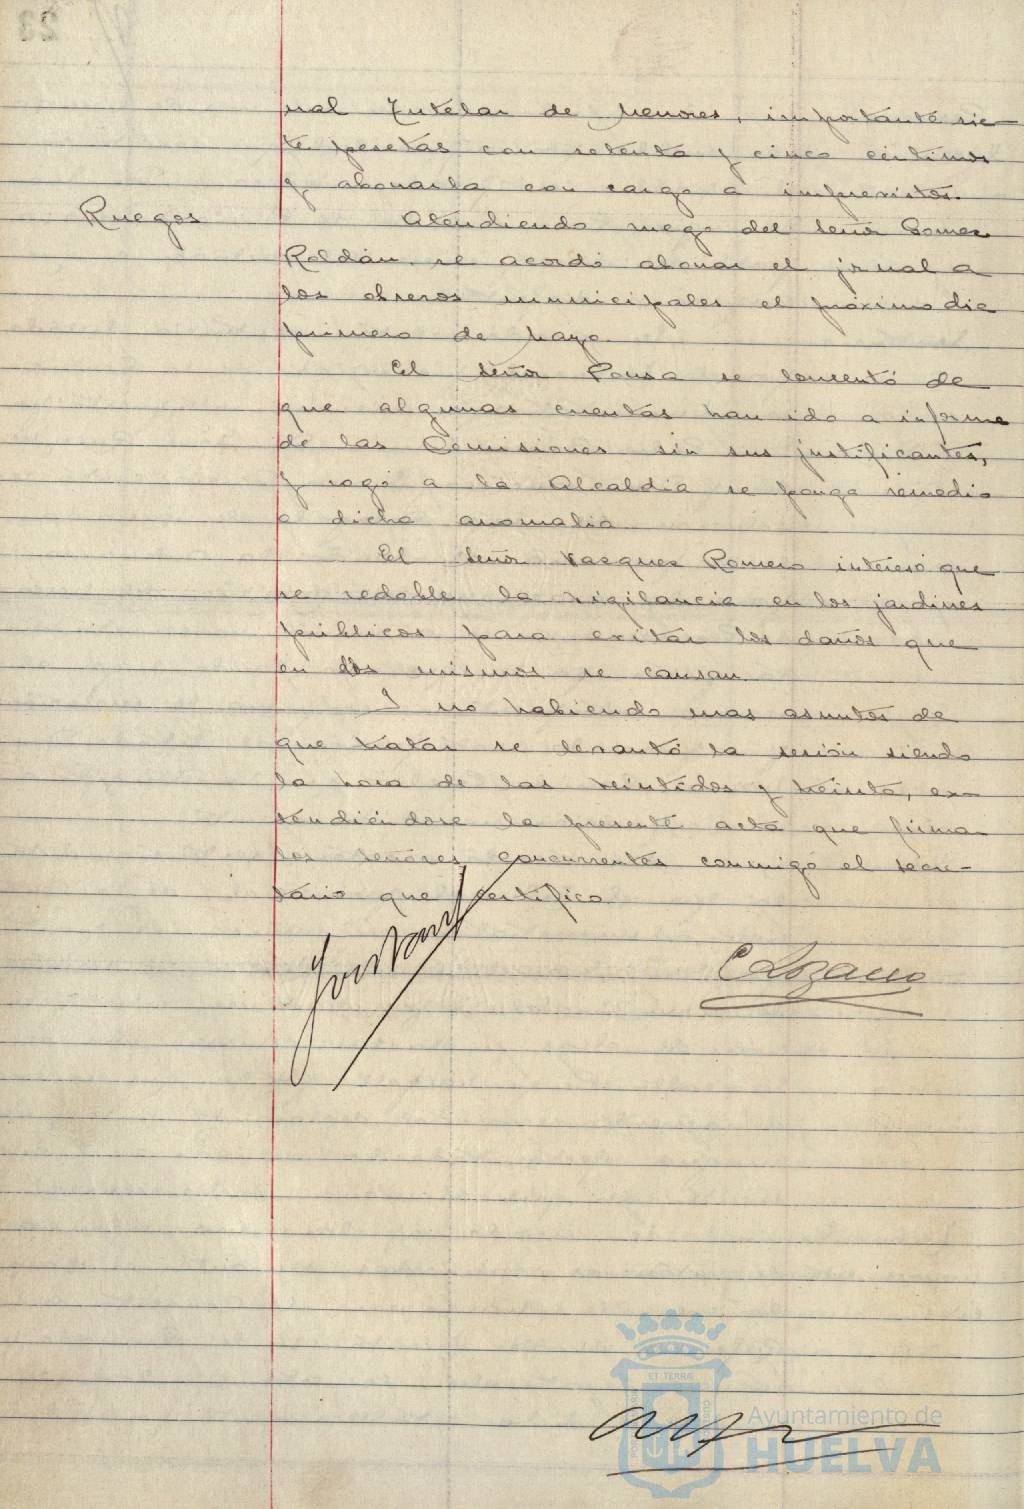 nal Tutelar de Menores, importante sie-
te pesetas con setenta y cinco centimos
y abonarla con cargo a imprevistos.
Ruegos
Atendiendo ruego del señor Gomez
Roldán, se acordó abonar el jrnal a
los obreros municipales el próximo dia
primero de Mayo.
El señor Ponsa se lamentó de
que algunas cuentas han ido a informe
de las Comisiones sin sus justificantes,
y rogó a la Alcaldia se ponga remedio
a dicha anomalia
El señor Vazquez Romero interesó que
se redoble la vigilancia en los jardines
públicos para evitar los daños que
en los mismos se causan.
Y no habiendo mas asuntos de
que tratar se levantó la sesión siendo
la hora de las veintidos y treinta, ex-
tendiéndose la presente acta que firman
los señores concurrentes conmigo el secre-
tario que certifico
C Lozano
ET TERRÆ
Ayuntamiento de
HUELVA